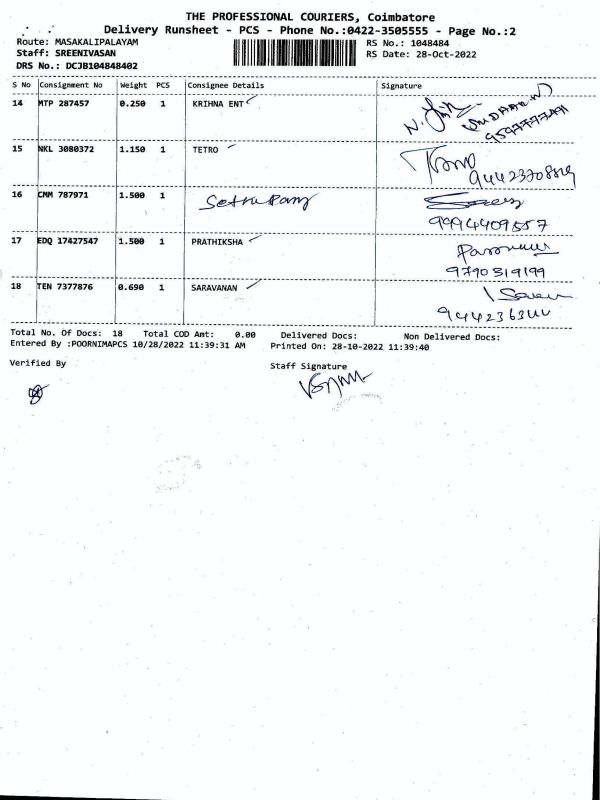 THE PROFESSIONAL COURIERS, Coimbatore
Delivery Runsheet - PCS - Phone No.:0422-3505555 - Page No.:2
Route: MASAKALIPALAYAM RS No.: 1048484
Staff: SREENIVASAN RS Date: 28-Oct-2022
DRS No.: DCJB104848402
S No Consignment No Weight PCS Consignee Details Signature
14 MTP 287457 0.250 1 KRIHNA ENT
15 NKL 3080372 1.150 1 TETRO
16 CMM 787971 1.500 1
9994409557
17 EDQ 17427547 1.500 1 PRATHIKSHA
9790519199
18 TEN 7377876 0.690 1 SARAVANAN
Total No. Of Docs: 18 Total COD Amt: 0.00 Delivered Docs: Non Delivered Docs:
Entered By :POORNIMAPCS 10/28/2022 11:39:31 AM Printed On: 28-10-2022 11:39:40
Verified By Staff Signature